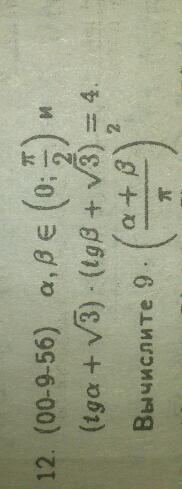 12. (00-9-56) α, β ∈ (0; π/2) и
(tgα + √3) · (tgβ + √3) = 4.
Вычислите 9 · ((α + β)/π)²